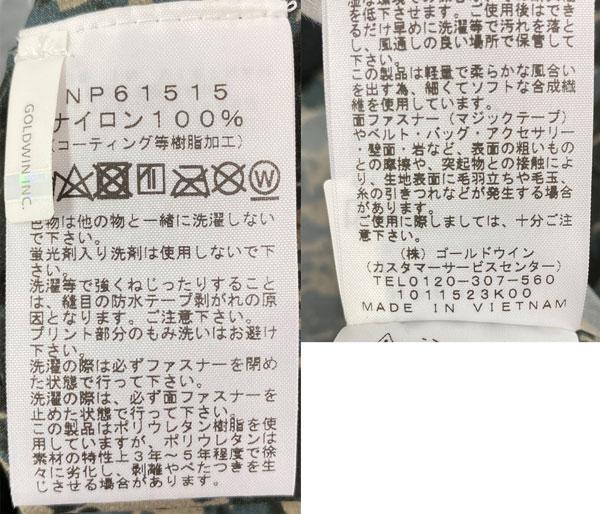 GOLDWIN INC.
NP61515
ナイロン100%
(コーティング等樹脂加工)
W
色物は他の物と一緒に洗濯しない
で下さい。
蛍光剤入り洗剤は使用しないで下
さい。
洗濯等で強くねじったりすること
は、縫目の防水テープ剥がれの原
因となります。ご注意下さい。
プリント部分のもみ洗いはお避け
下さい。
洗濯の際は必ずファスナーを閉め
た状態で行って下さい。
洗濯の際は、必ず面ファスナーを
止めた状態で行って下さい。
この製品はポリウレタン樹脂を使
用していますが、ポリウレタンは
素材の特性上3年~5年程度で徐
々に劣化し、剥離やべたつきを生
じさせる場合があります。
を低下させます。ご使用後はでき
るだけ早めに洗濯等で汚れを落と
し、風通しの良い場所で保管して
下さい。
この製品は軽量で柔らかな風合い
を出す為、細くてソフトな合成繊
維を使用しています。
面ファスナー(マジックテープ)
やベルト・バッグ・アクセサリー
・壁面・岩など、表面の粗いもの
との摩擦や、突起物との接触によ
り、生地表面に毛羽立ちや毛玉、
糸の引きつれなどが発生する場合
があります。
ご使用に際しましては、十分ご注
意下さい。
(株)ゴールドウイン
(カスタマーサービスセンター)
TEL0120-307-560
1011523K00
MADE IN VIETNAM